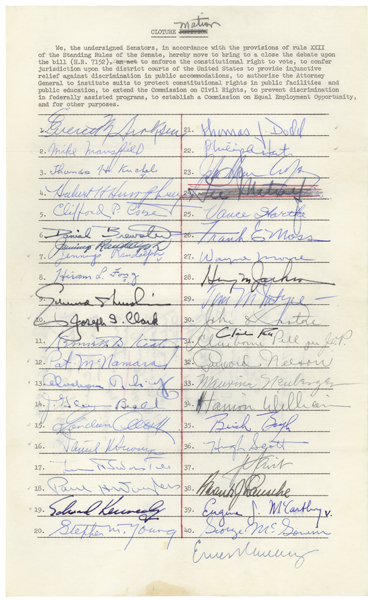 CLOTURE Motion
We, the undersigned Senators, in accordance with the provisions of rule XXII
of the Standing Rules of the Senate, hereby move to bring to a close the debate upon
the bill (H.R. 7152), an act to enforce the constitutional right to vote, to confer
jurisdiction upon the district courts of the United States to provide injunctive
relief against discrimination in public accommodations, to authorize the Attorney
General to institute suits to protect constitutional rights in public facilities and
public education, to extend the Commission on Civil Rights, to prevent discrimination
in federally assisted programs, to establish a Commission on Equal Employment Opportunity,
and for other purposes.
1. Everett M Dirksen
2. Mike Mansfield
3. Thomas H. Kuchel
4. Hubert H Humphrey
5. Clifford P. Case
6. Daniel Brewster
7. Jennings Randolph
Jennings Randolph
8. Hiram L. Fong
9.
10. Joseph S. Clark
11. Kenneth B. Keating
12. Pat McNamara
13. Abraham Ribicoff
14. J. Glenn Beall
15.
16. Daniel K Inouye
17.
18.
19. Edward Kennedy
20. Stephen M. Young
21. Thomas J Dodd
22. Philip A Hart
23.
24. Lee Metcalf
25. Vance Hartke
26. Frank E Moss
27. Wayne Morse
28. Henry M Jackson
29.
30.
31. Claiborne Pell
32. Gaylord Nelson
33. Maurine Neuberger
34. Harrison Williams
35. Birch Bayh
36. Hugh Scott
37.
38. Frank J Lausche
39. Eugene J. McCarthy
40. George McGovern